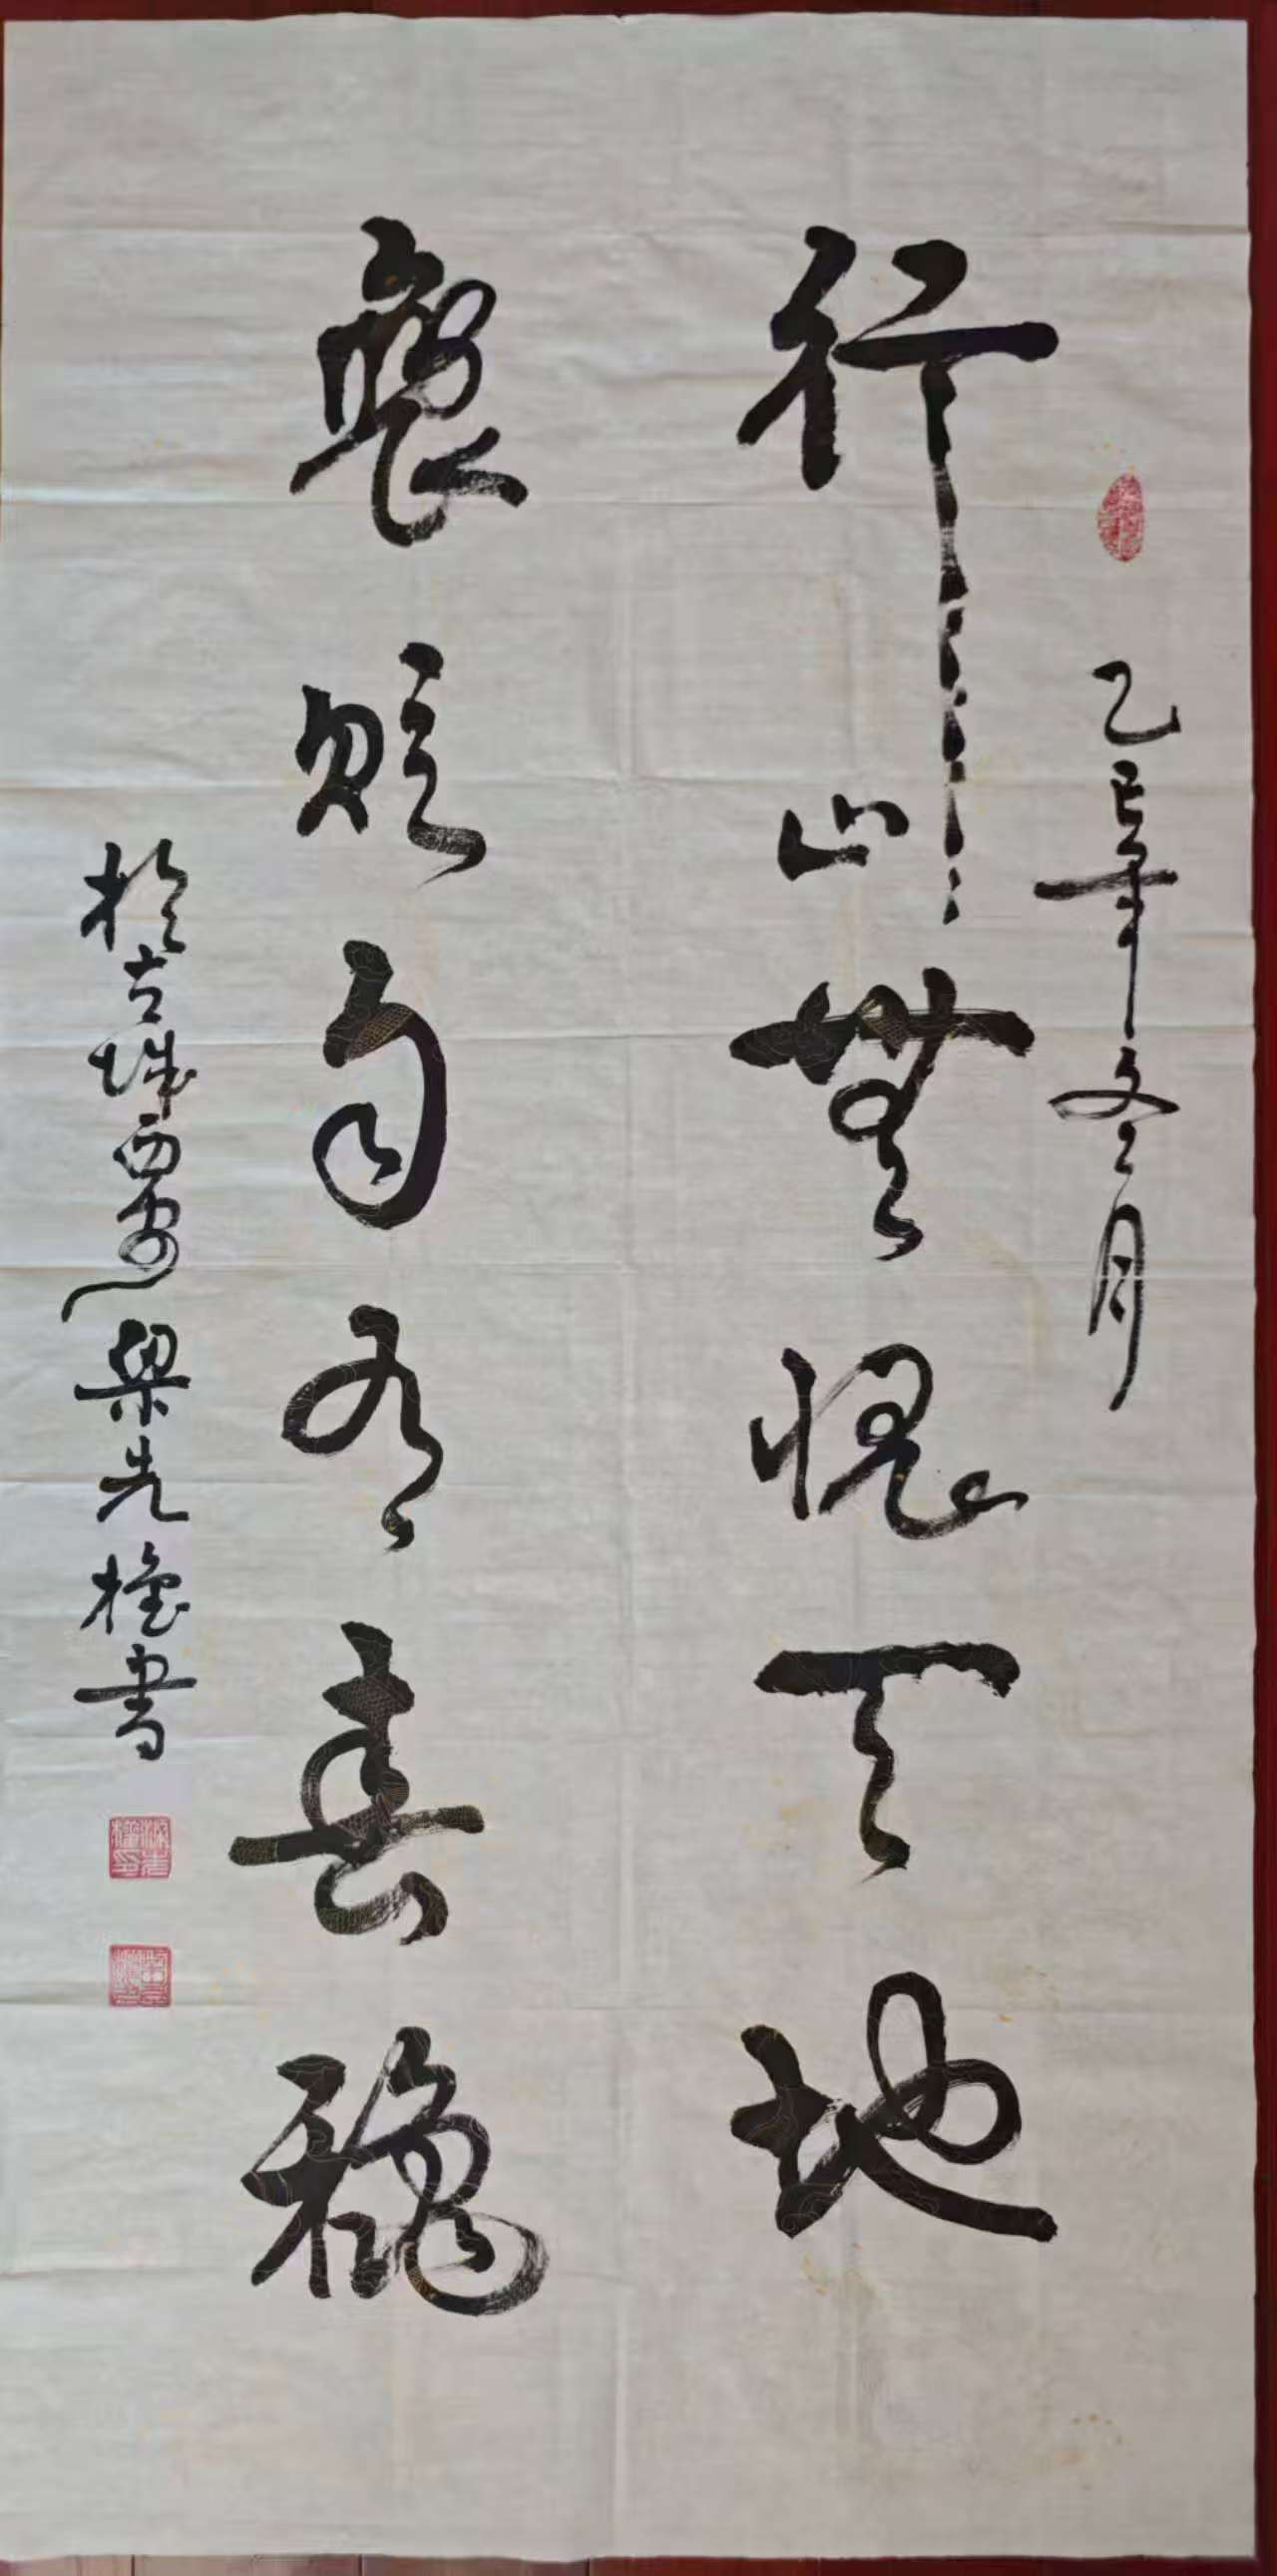 乙巳年冬月
行止無愧天地
褒貶自有春龝
於古城西安梁先權書